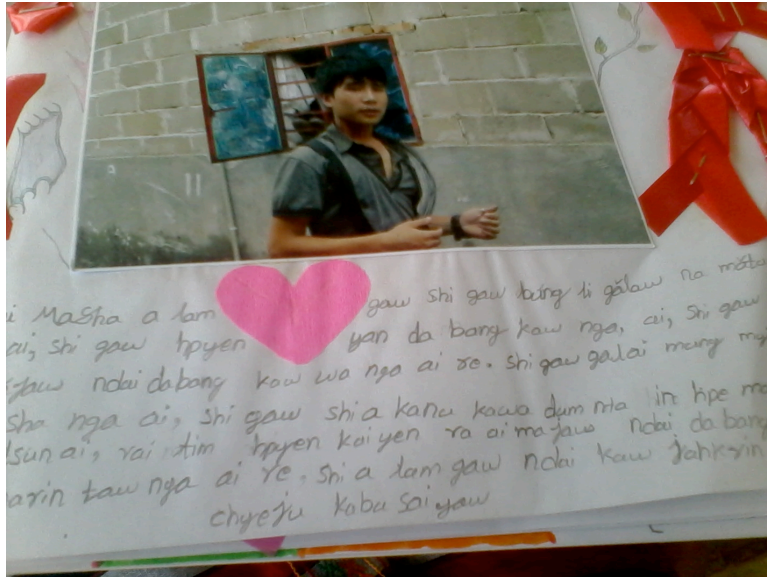 Masha a lam gaw shi gaw bŭng li gălaw na mătu
ai, shi gaw hpyen yan da bang kaw nga, ai, shi gaw
ndai dabang kaw wa nga ai re. shi gaw galai mung
sha nga ai, shi gaw shi a kanu kawa dum nta hpe
ai, rai tim hpyen kaiyen ra ai majaw ndai dabang
taw nga ai re. shi a lam gaw ndai kaw jahkrin
chyeju kaba sai yaw